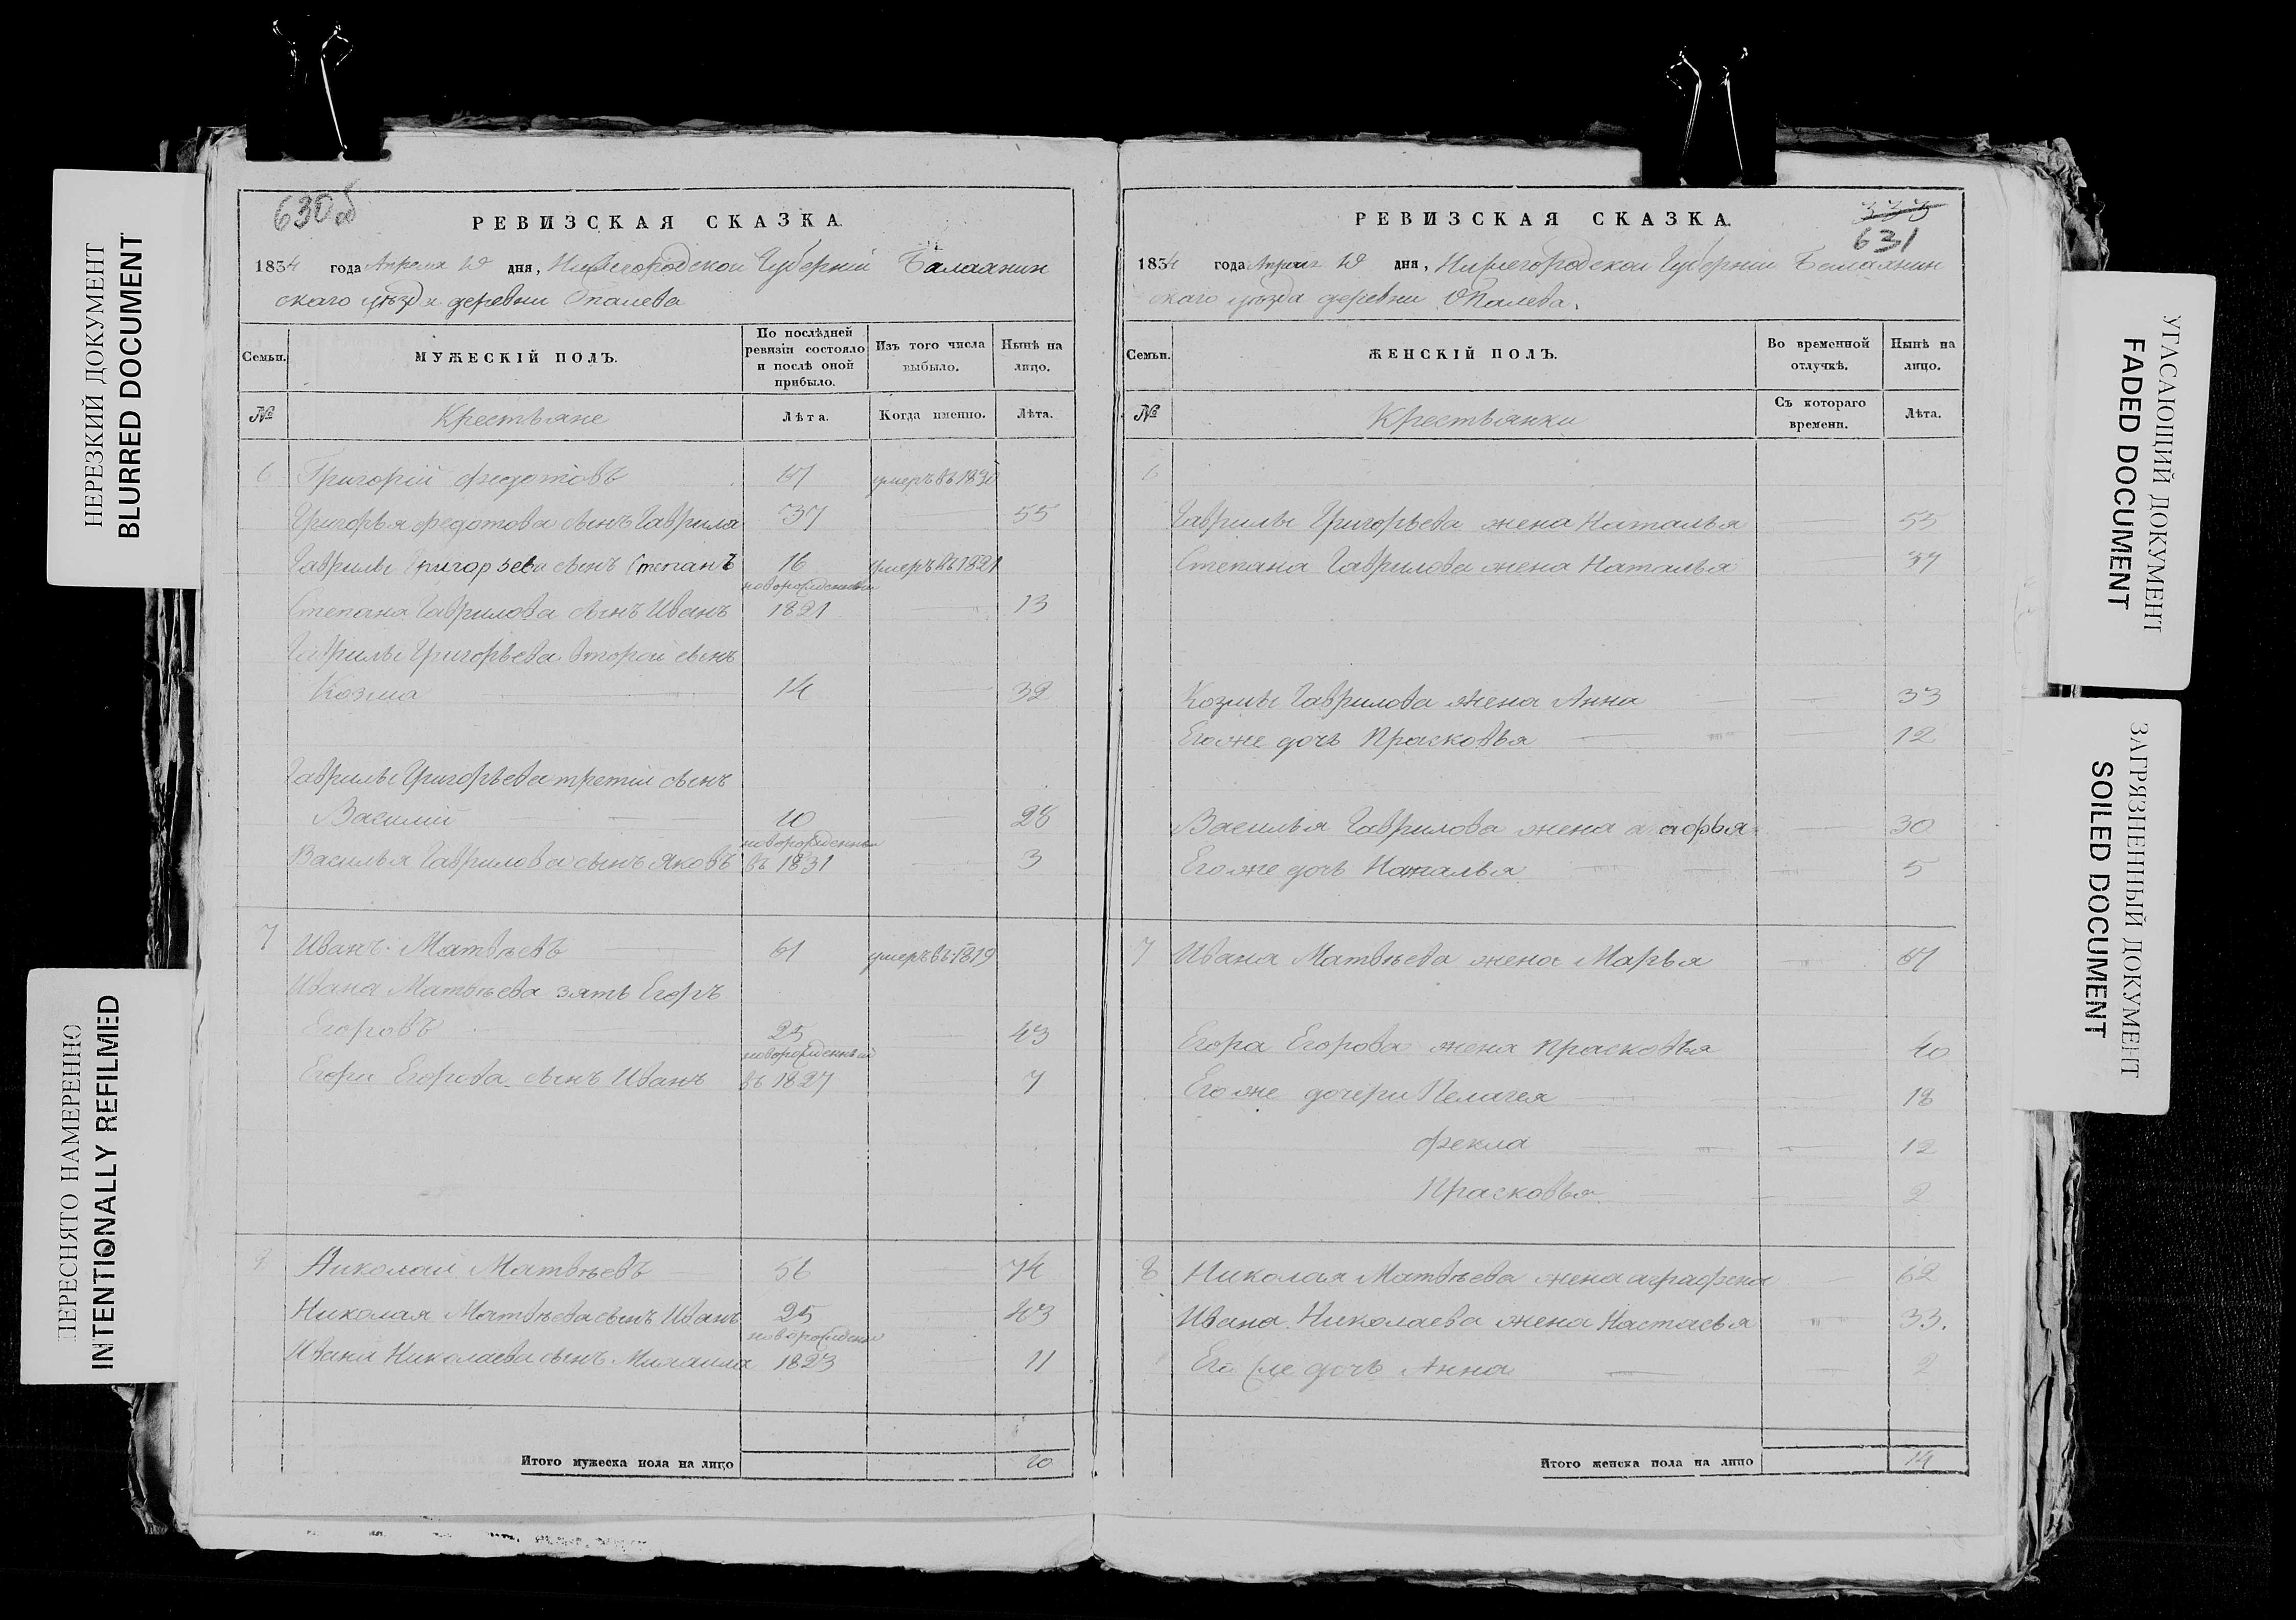 НЕРЕЗКИЙ ДОКУМЕНТ
BLURRED DOCUMENT
ПЕРЕСНЯТО НАМЕРЕННО
INTENTIONALLY REFILMED
630об
РЕВИЗСКАЯ СКАЗКА.
1834 года Апреля 10 дня, Нижегородской Губерніи Балахнин
скаго уѣзда деревни Опалева
Семьи.
МУЖЕСКІЙ ПОЛЪ.
По послѣдней ревизіи состояло и послѣ оной прибыло.
Изъ того числа выбыло.
Нынѣ на лицо.
№ Крестьяне Лѣта. Когда именно. Лѣта.
6 Григорій Федотовъ умеръ въ 1830
Григорья Федотова сынъ Гаврила 37 55
Гаврилы Григорьева сынъ Степанъ 16 умеръ въ 1821
новорожденный
Степана Гаврилова сынъ Иванъ 1821 13
Гаврилы Григорьева второй сынъ
Козма 14 32
Гаврилы Григорьева третій сынъ
Василий 10 28
новорожденный
Василья Гаврилова сынъ Яковъ въ 1831 3
7 Иванъ Матвѣевъ 61 умеръ въ 1819
Ивана Матвѣева зять Егоръ
Егоровъ 25 43
новорожденный
Егора Егорова сынъ Иванъ въ 1827 7
8 Николай Матвѣевъ 56 74
Николая Матвѣева сынъ Иванъ 25 43
новорожденный
Ивана Николаева сынъ Михаила 1823 11
Итого мужеска пола на лицо 10
РЕВИЗСКАЯ СКАЗКА.
631
1834 года Апреля 10 дня, Нижегородской Губерніи Балахнин
скаго уѣзда деревни Опалева.
Семьи.
ЖЕНСКІЙ ПОЛЪ.
Во временной отлучкѣ.
Нынѣ на лицо.
№ Крестьянки Съ котораго времени. Лѣта.
6
Гаврилы Григорьева жена Наталья 55
Степана Гаврилова жена Наталья 37
Козмы Гаврилова жена Анна 33
Его же дочь Прасковья 12
Василья Гаврилова жена агафья 30
Его же дочь Наталья 5
7 Ивана Матвѣева жена Марья
Егора Егорова жена Прасковья 40
Его же дочери Пелагея 18
Фекла 12
Прасковья 2
8 Николая Матвѣева жена аграфена 62
Ивана Николаева жена Настасья 33.
Его же дочь Анна 2
Итого женска пола на лицо 14
УГАСАЮЩИЙ ДОКУМЕНТ
FADED DOCUMENT
ЗАГРЯЗНЕННЫЙ ДОКУМЕНТ
SOILED DOCUMENT